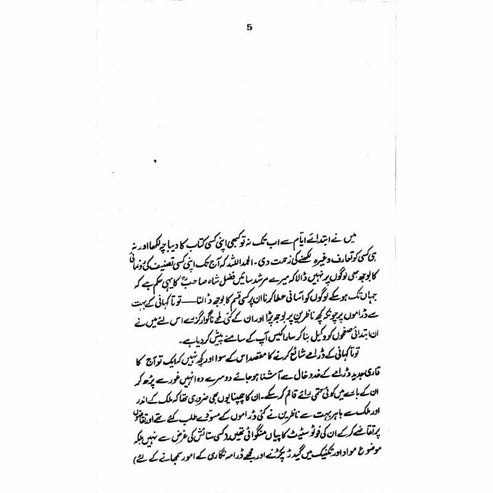 5
میں نے ابتدائے ایام سے اب تک نہ تو کبھی اپنی کسی کتاب کا دیباچہ لکھا اور نہ
ہی کسی کو تعارف وغیرہ لکھنے کی زحمت دی۔ الحمد اللہ کہ آج تک اپنی کسی تصنیف کی
کا بوجھ بھی لوگوں پر نہیں ڈالا کہ میرے مرشد سائیں فضل شاہ صاحبؒ کا یہی حکم ہے کہ
جہاں تک ہو سکے لوگوں کو آسانی عطا کرنا ان پر کسی قسم کا بوجھ نہ ڈالنا — توتا کہانی کے بہت
سے ڈراموں پر چونکہ کچھ ناظرین پر بوجھ پڑا اور ان کے کئی لمحے ناگوار گزرے اس لئے میں نے
ان ابتدائی صفحوں کو وکیل بنا کر سارا کیس آپ کے سامنے پیش کر دیا ہے۔
توتا کہانی کے ڈرامے شائع کرنے کا مقصد اس کے سوا اور کچھ نہیں کہ ایک تو آج کا
قاری جدید ڈرامے کے خدوخال سے آشنا ہو جائے دوسرے وہ انہیں غور سے پڑھ کر
ان کے بارے میں کوئی حتمی رائے قائم کر سکے۔ ان کا چھپنا یوں بھی ضروری تھا کہ ملک کے اندر
اور ملک سے باہر بہت سے ناظرین نے کئی ڈراموں کے مسودے طلب کئے تھے اور
پر تقاضے کر کے ان کی فوٹو سٹیٹ کاپیاں منگوائی تھیں (کسی ستائش کی غرض سے نہیں بلکہ
موضوع مواد اور تکنیک میں کیڑے پکڑنے اور مجھے ڈرامہ نگاری کے امور سمجھانے کے لئے)